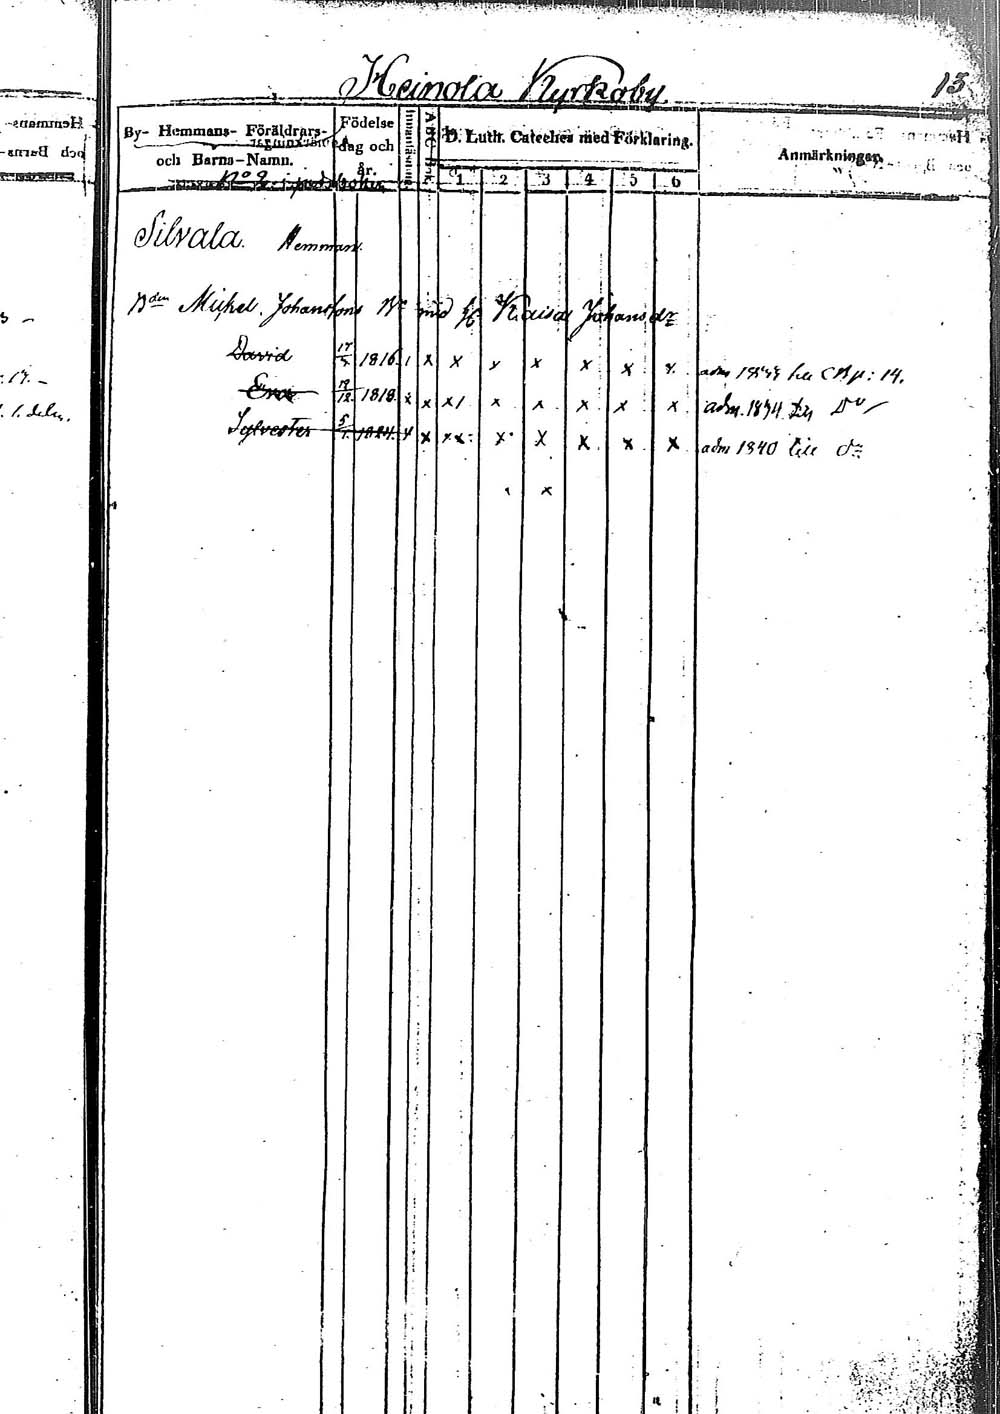 Heinola Kyrkoby
13
By- Hemmans- Föräldrars- och Barns-Namn.
Födelse dag och år.
Innanläsning
A B C Bok.
D. Luth. Cateches med Förklaring.
1 2 3 4 5 6
Anmärkningar.
No 2
Silvala. Hemman.
Bden Michel Johansons Br med h. Kaisa Johans dr
David 17/5 1816. x x x x x x x adm till CB p: 14.
Eva 19/12 1818. x x x x x x x x adm. 1834 till Do
Sylvester 5/1 1824. x x x x x x x x x adm 1840 till do
x
Hemmans-
och Barns-